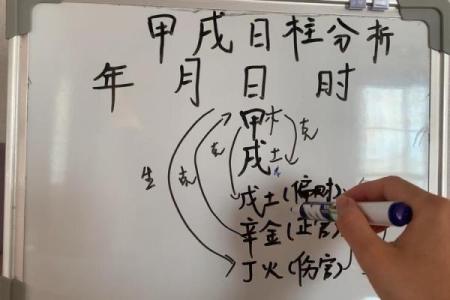 甲戌日柱分析
年 月 日 时
甲木 克
戌土
生 克 克
戊土(偏财)
辛金(正官)
丁火(伤官)